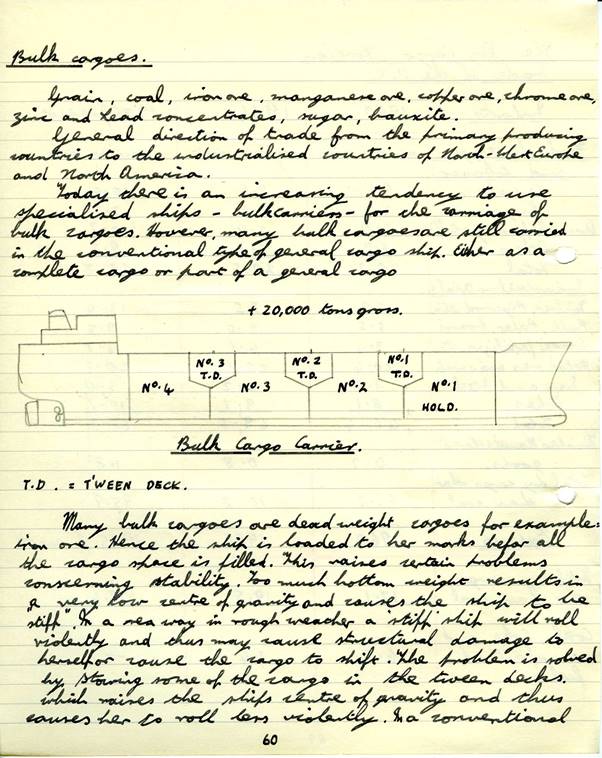 Bulk cargoes.
Grain, coal, iron ore, manganese ore, copper ore, chrome ore,
zinc and lead concentrates, sugar, bauxite.
General direction of trade from the primary producing
countries to the industrialised countries of North-West Europe
and North America.
Today there is an increasing tendency to use
specialised ships - bulkcarriers - for the carriage of
bulk cargoes. However, many bulk cargoes are still carried
in the conventional type of general cargo ship. Either as a
complete cargo or part of a general cargo
+ 20,000 tons gross.
No. 3 T.D. No. 2 T.D. No. 1 T.D.
No. 4 No. 3 No. 2 No. 1 HOLD.
Bulk Cargo Carrier.
T.D. = T'WEEN DECK.
Many bulk cargoes are deadweight cargoes for example:
iron ore. Hence the ship is loaded to her marks befor all
the cargo space is filled. This raises certain problems
conscerning stability. Too much bottom weight results in
a very low centre of gravity and causes the ship to be
"stiff". In a sea way in rough weather a stiff ship will roll
violently and thus may cause structural damage to
herself or cause the cargo to shift. The problem is solved
by stowing some of the cargo in the tween decks.
which raises the ships centre of gravity and thus
causes her to roll less violently. In a conventional
60